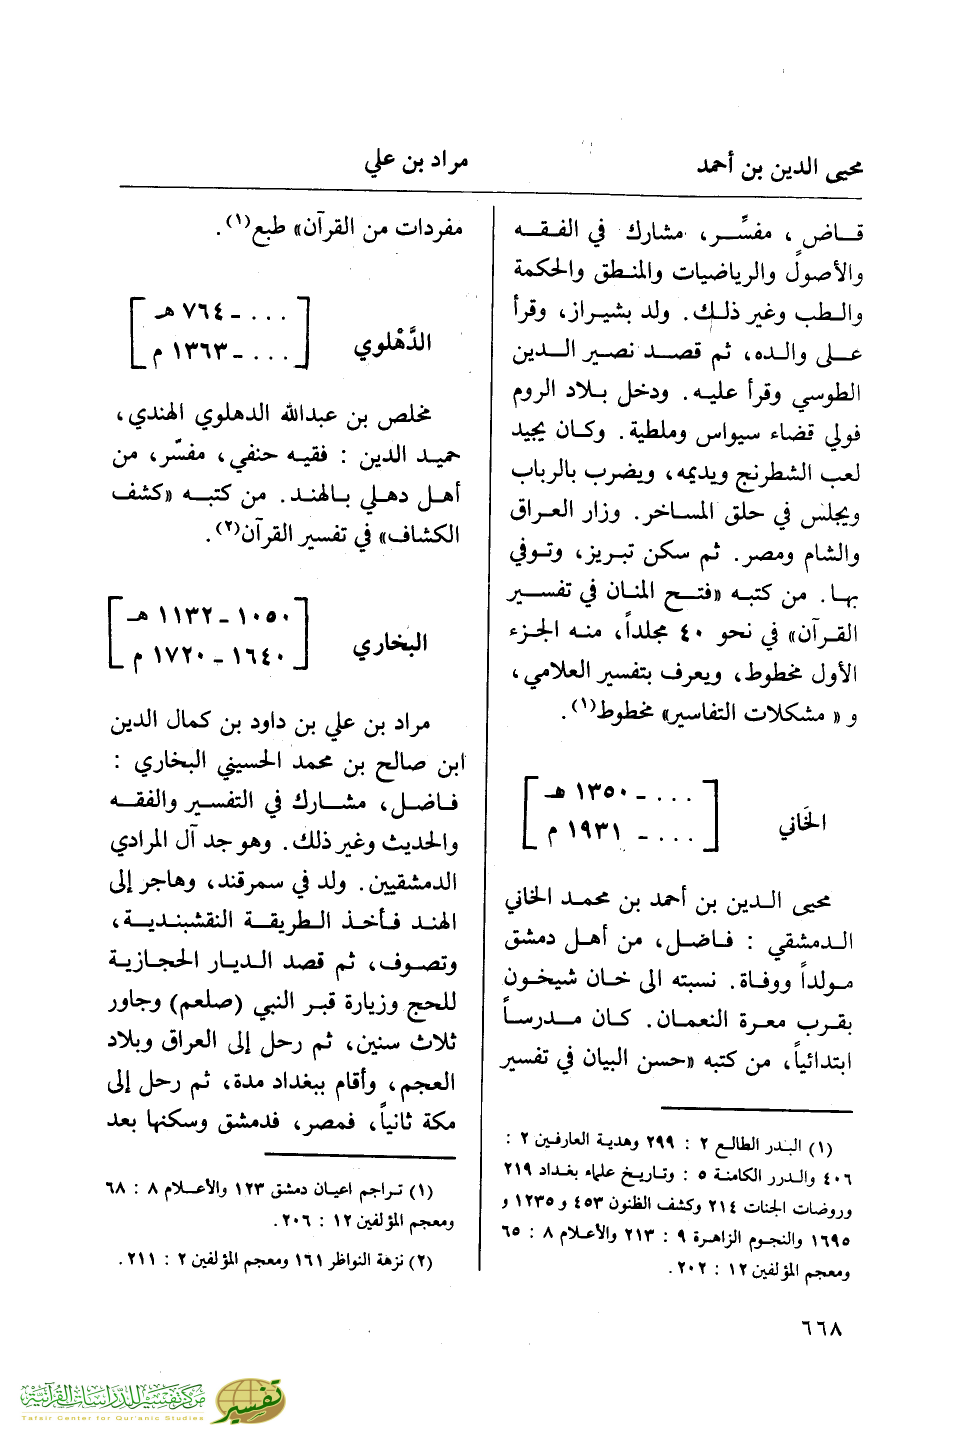 محيى الدين بن أحمد
مراد بن علي
قاضٍ، مفسِّر، مشارك في الفقه
والأصول والرياضيات والمنطق والحكمة
والطب وغير ذلك. ولد بشيراز، وقرأ
على والده، ثم قصد نصير الدين
الطوسي وقرأ عليه. ودخل بلاد الروم
فولي قضاء سيواس وملطية. وكان يجيد
لعب الشطرنج ويديمه، ويضرب بالرباب
ويجلس في حلق المساخر. وزار العراق
والشام ومصر. ثم سكن تبريز، وتوفي
بها. من كتبه «فتح المنان في تفسير
القرآن» في نحو ٤٠ مجلداً، منه الجزء
الأول مخطوط، ويعرف بتفسير العلامي،
و « مشكلات التفاسير» مخطوط(١).
الخَاني
[... - ١٣٥٠ هـ
... - ١٩٣١ م]
محيى الدين بن أحمد بن محمد الخاني
الدمشقي : فاضل، من أهل دمشق
مولداً ووفاة. نسبته الى خان شيخون
بقرب معرة النعمان. كان مدرساً
ابتدائياً، من كتبه «حسن البيان في تفسير
(١) البدر الطالع ٢ : ٢٩٩ وهدية العارفين ٢ :
٤٠٦ والدرر الكامنة ٥ : وتاريخ علماء بغداد ٢١٩
وروضات الجنات ٢١٤ وكشف الظنون ٤٥٣ و ١٢٣٥ و
١٦٩٥ والنجوم الزاهرة ٩ : ٢١٣ والأعلام ٨ : ٦٥
ومعجم المؤلفين ١٢ : ٢٠٢.
مفردات من القرآن» طبع(١).
الدَّهْلوي
[... - ٧٦٤ هـ
... - ١٣٦٣ م]
مخلص بن عبدالله الدهلوي الهندي،
حميد الدين : فقيه حنفي، مفسّر، من
أهل دهلي بالهند. من كتبه «كشف
الكشاف» في تفسير القرآن(٢).
البخاري
[١٠٥٠ - ١١٣٢ هـ
١٦٤٠ - ١٧٢٠ م]
مراد بن علي بن داود بن كمال الدين
ابن صالح بن محمد الحسيني البخاري :
فاضل، مشارك في التفسير والفقه
والحديث وغير ذلك. وهو جد آل المرادي
الدمشقيين. ولد في سمرقند، وهاجر إلى
الهند فأخذ الطريقة النقشبندية،
وتصوف، ثم قصد الديار الحجازية
للحج وزيارة قبر النبي (صلعم) وجاور
ثلاث سنين، ثم رحل إلى العراق وبلاد
العجم، وأقام ببغداد مدة، ثم رحل إلى
مكة ثانياً، فمصر، فدمشق وسكنها بعد
(١) تراجم اعيان دمشق ١٢٣ والأعلام ٨ : ٦٨
ومعجم المؤلفين ١٢ : ٢٠٦.
(٢) نزهة النواظر ١٦١ ومعجم المؤلفين ٢ : ٢١١.
٦٦٨
مركز تفسير للدراسات القرآنية
Tafsir Center for Qur'anic Studies
تفسير